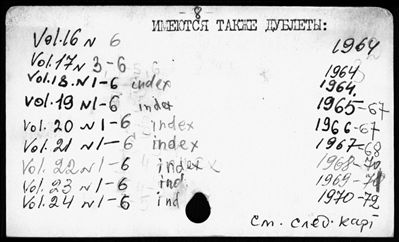 - 8 -
ИМЕЮТСЯ ТАКЖЕ ДУБЛЕТЫ:
Vol.16 N 6 1964
Vol.17 N 3-6 1964
Vol.18. N1-6 index 1964.
Vol.19 N1-6 index 1965-67
Vol. 20 N1-6 index 1966-67
Vol. 21 N1-6 index 1967-68
Vol. 22 N1-6 index 1968-70
Vol. 23 N1-6 ind 1969-71
Vol. 24 N1-6 ind 1970-72
См. след. карт